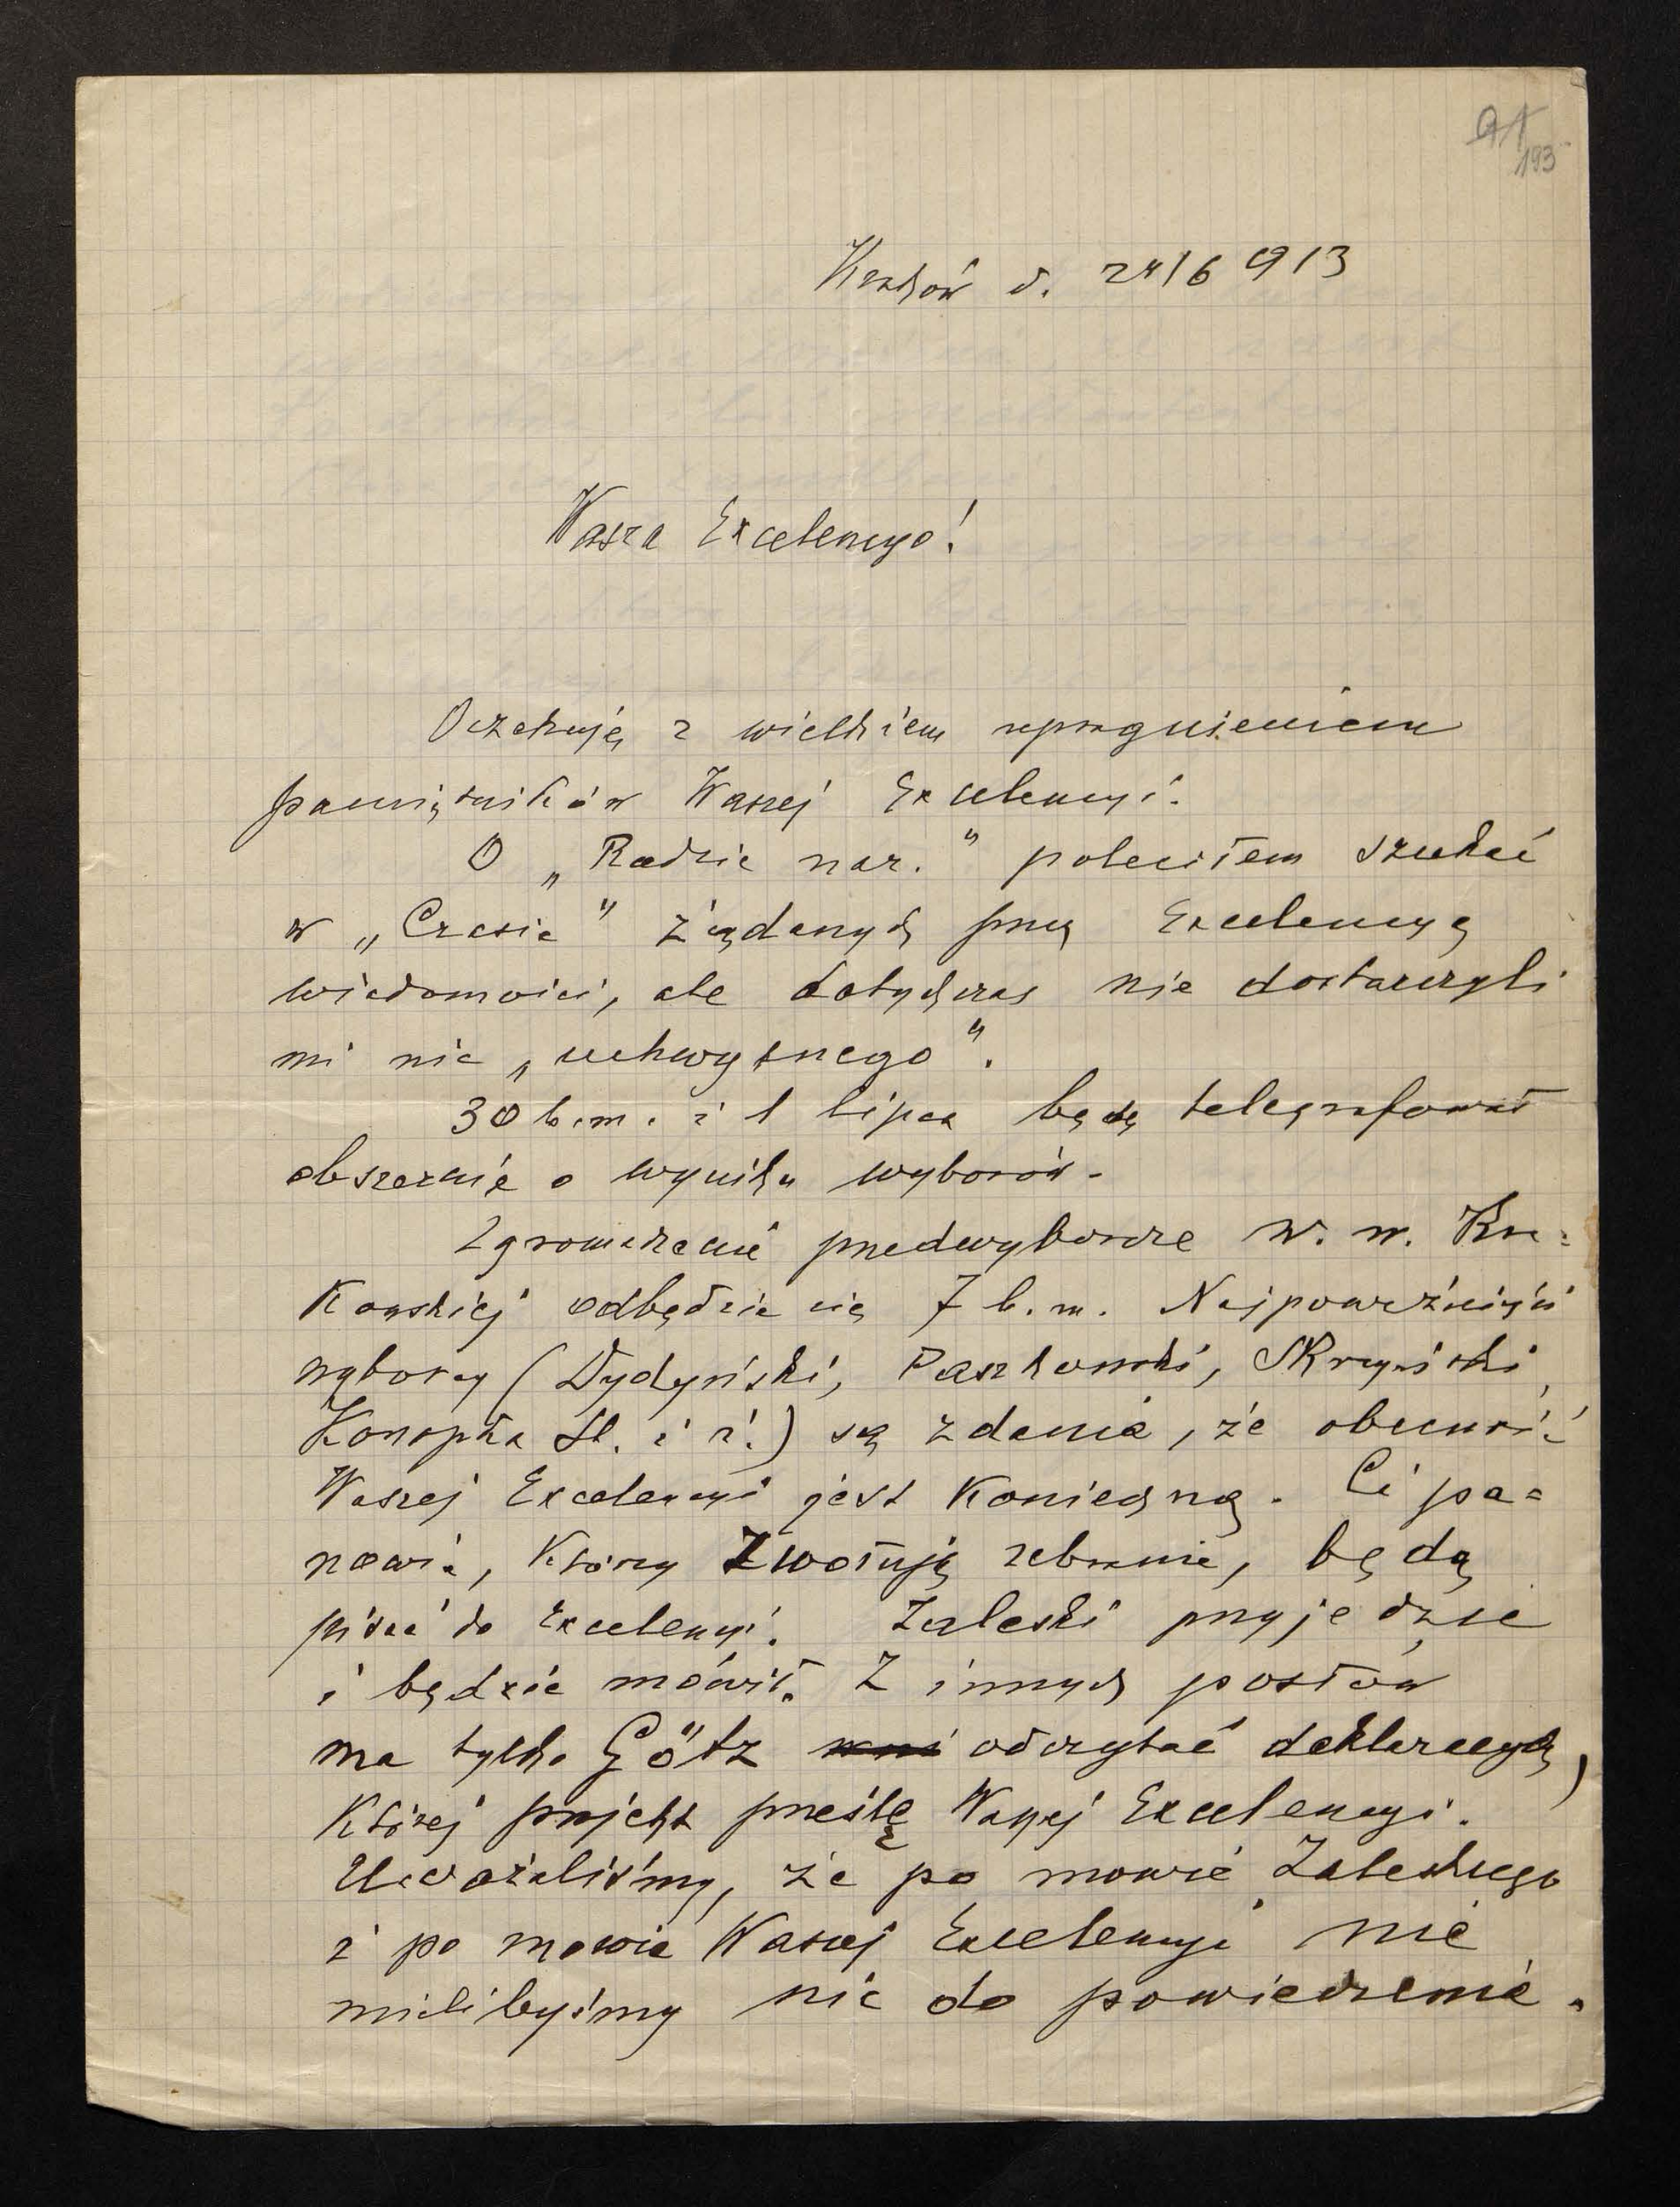 91
193
Kraków d. 24/6 913
Wasza Excelencyo!
Oczekuję z wielkiem upragnieniem
pamiętników Waszej Excelencyi.
O „Radzie nar.” poleciłem szukać
w „Czasie” żądanych przez Excelencyę
wiadomości, ale dotychczas nie dostarczyli
mi nic „uchwytnego”.
30 b.m. i 1 lipca będę telegrafował
obszernie o wyniku wyborów.
Zgromadzenie przedwyborcze w. w. Kra=
kowskiej odbędzie się 7 b.m. Najpoważniejsi
wyborcy (Dydyński, Paszkowski, Skrzyński,
Konopka St. i i.) są zdania, że obecność
Waszej Excelencyi jest konieczną. Ci pa=
nowie, którzy zwołują zebranie, będą
pisać do Excelencyi. Zaleski przyjedzie
i będzie mówił. Z innych posłów
ma tylko Götz odczytać deklaracyę,
której projekt prześlę Waszej Excelencyi.
Uważaliśmy, że po mowie Zaleskiego
i po mowie Waszej Excelencyi nie
mielibyśmy nic do powiedzenia.